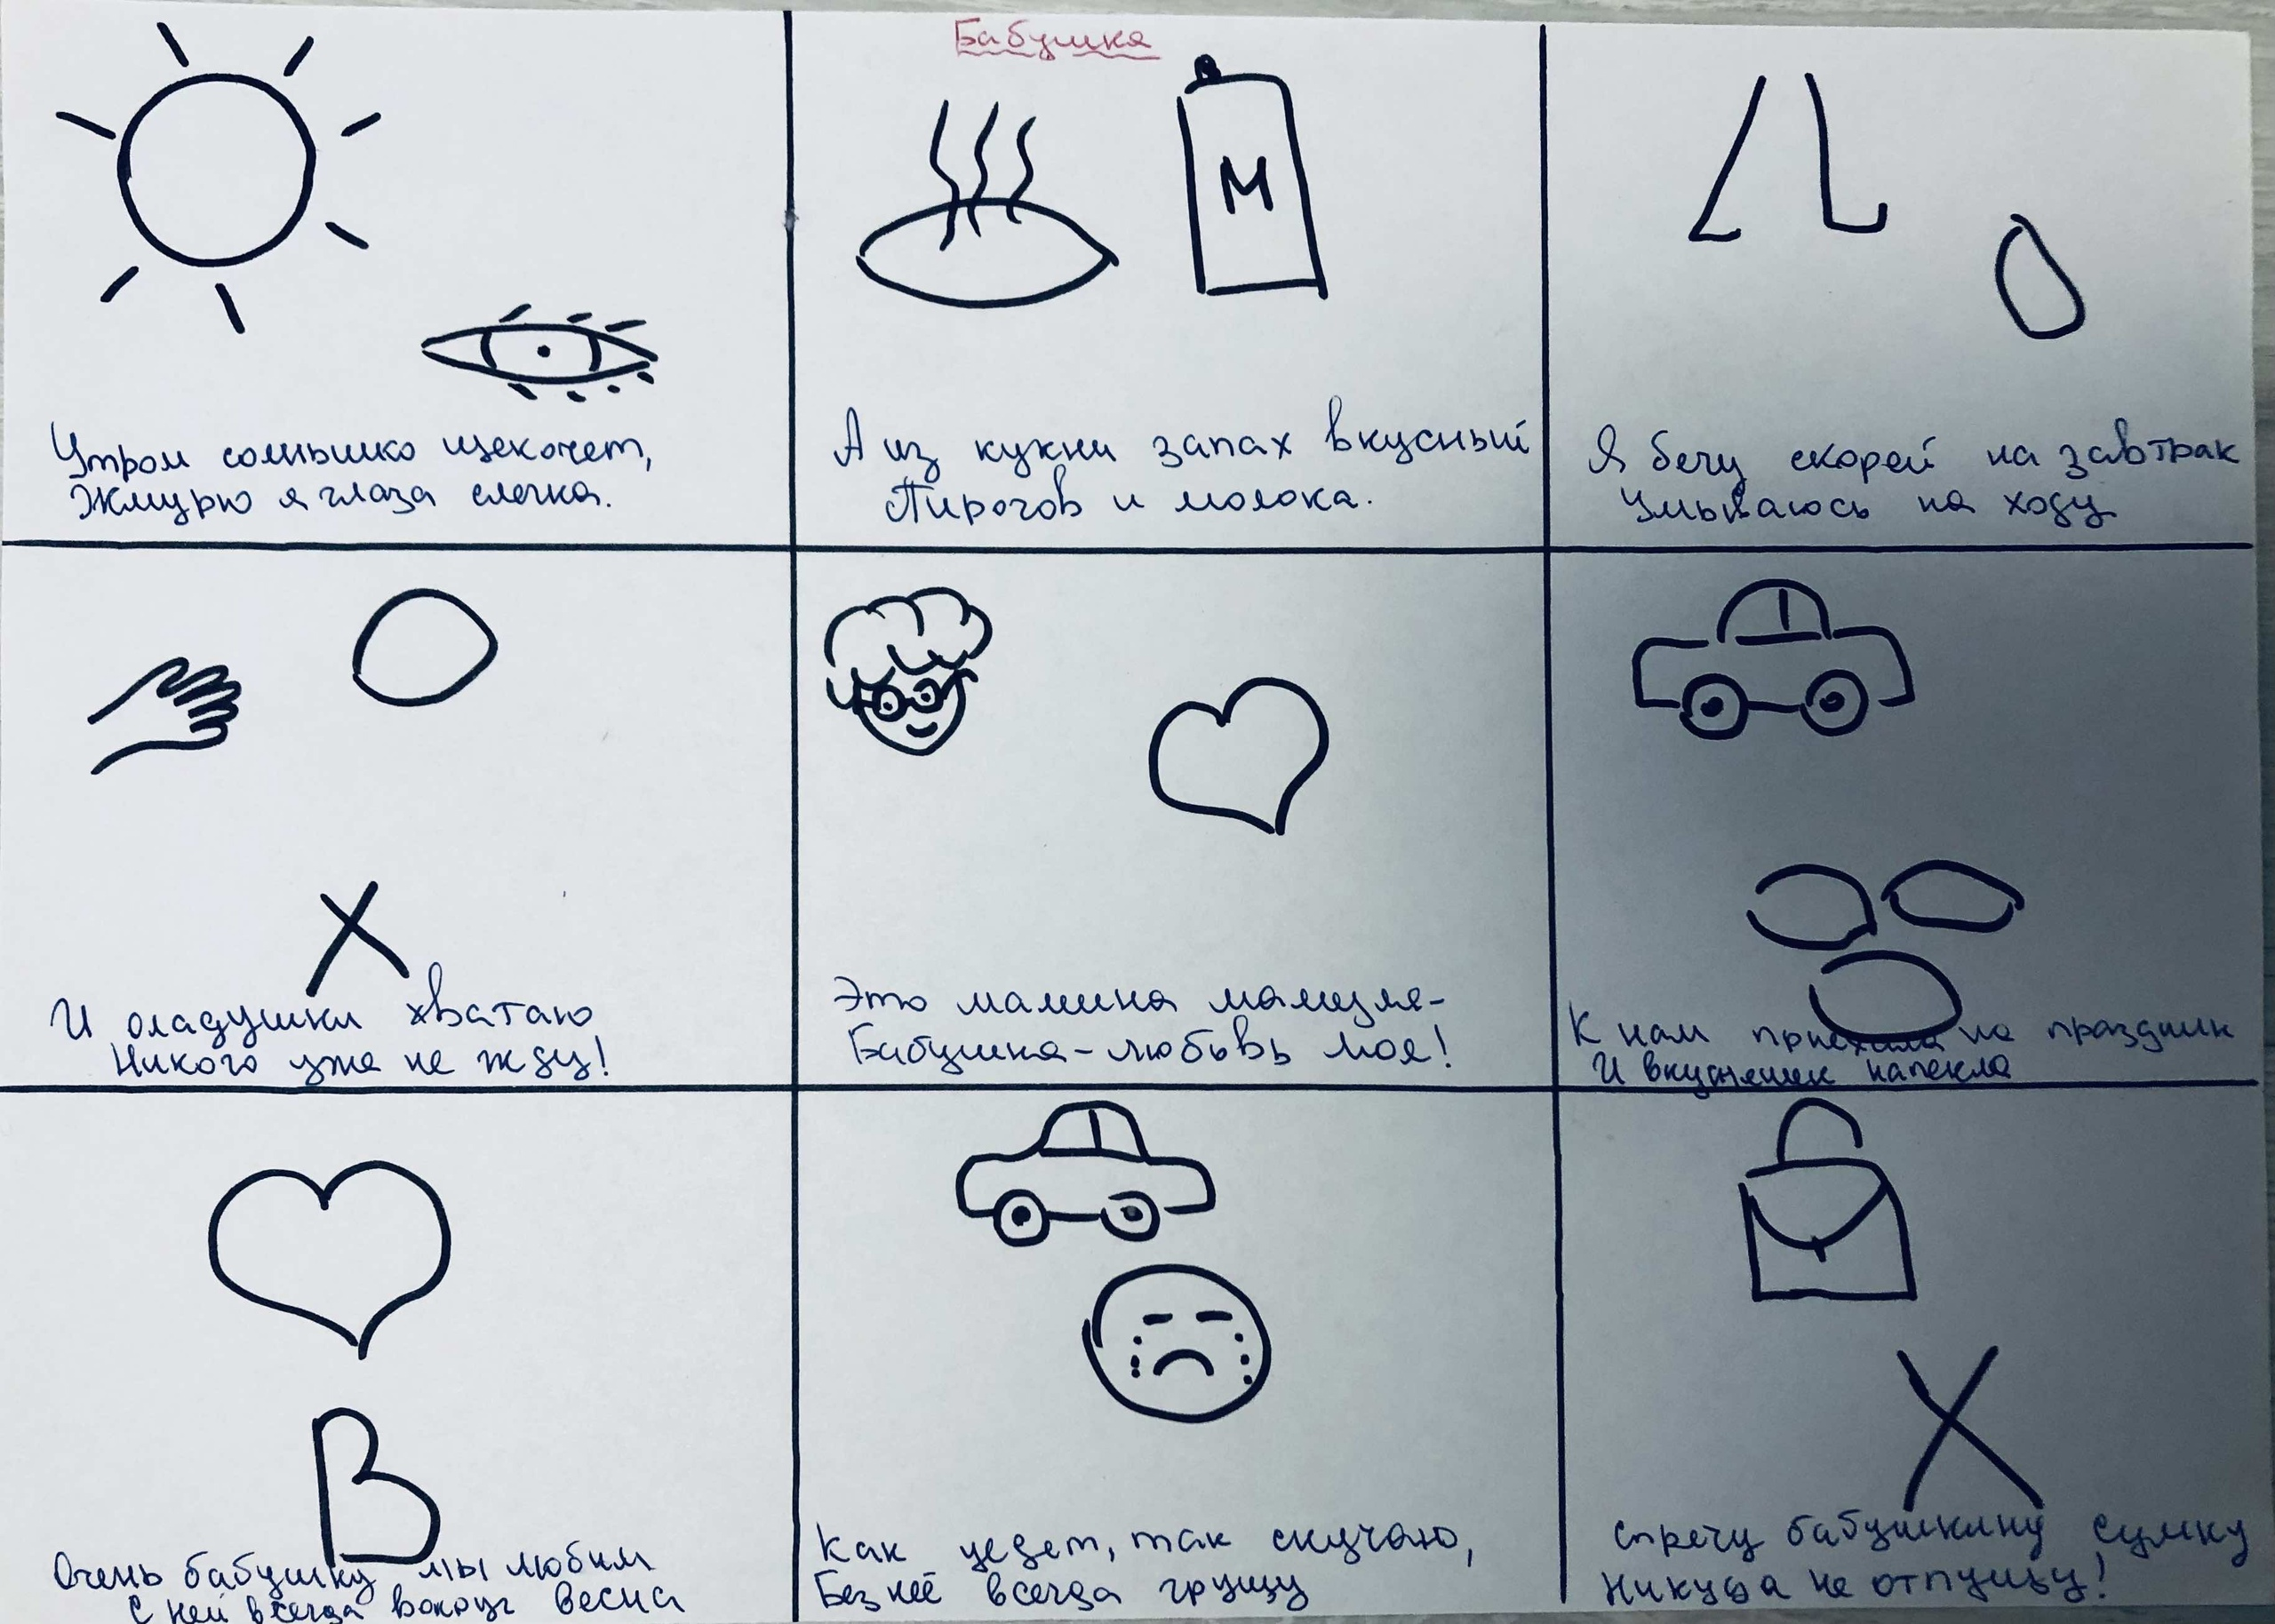 Бабушка
М
Утром солнышко щекочет,
Жмурю я глаза слегка.
А из кухни запах вкусный
Пирогов и молока.
Я бегу скорей на завтрак
Умываюсь на ходу
И оладушки хватаю
Никого уже не жду!
Это мамина мамуля-
Бабушка-любовь моя!
К нам приехала на праздник
И вкусняшек напекла
В
Очень бабушку мы любим
С ней всегда вокруг весна
Как уедет, так скучаю,
Без неё всегда грущу
Спрячу бабушкину сумку
Никуда не отпущу!